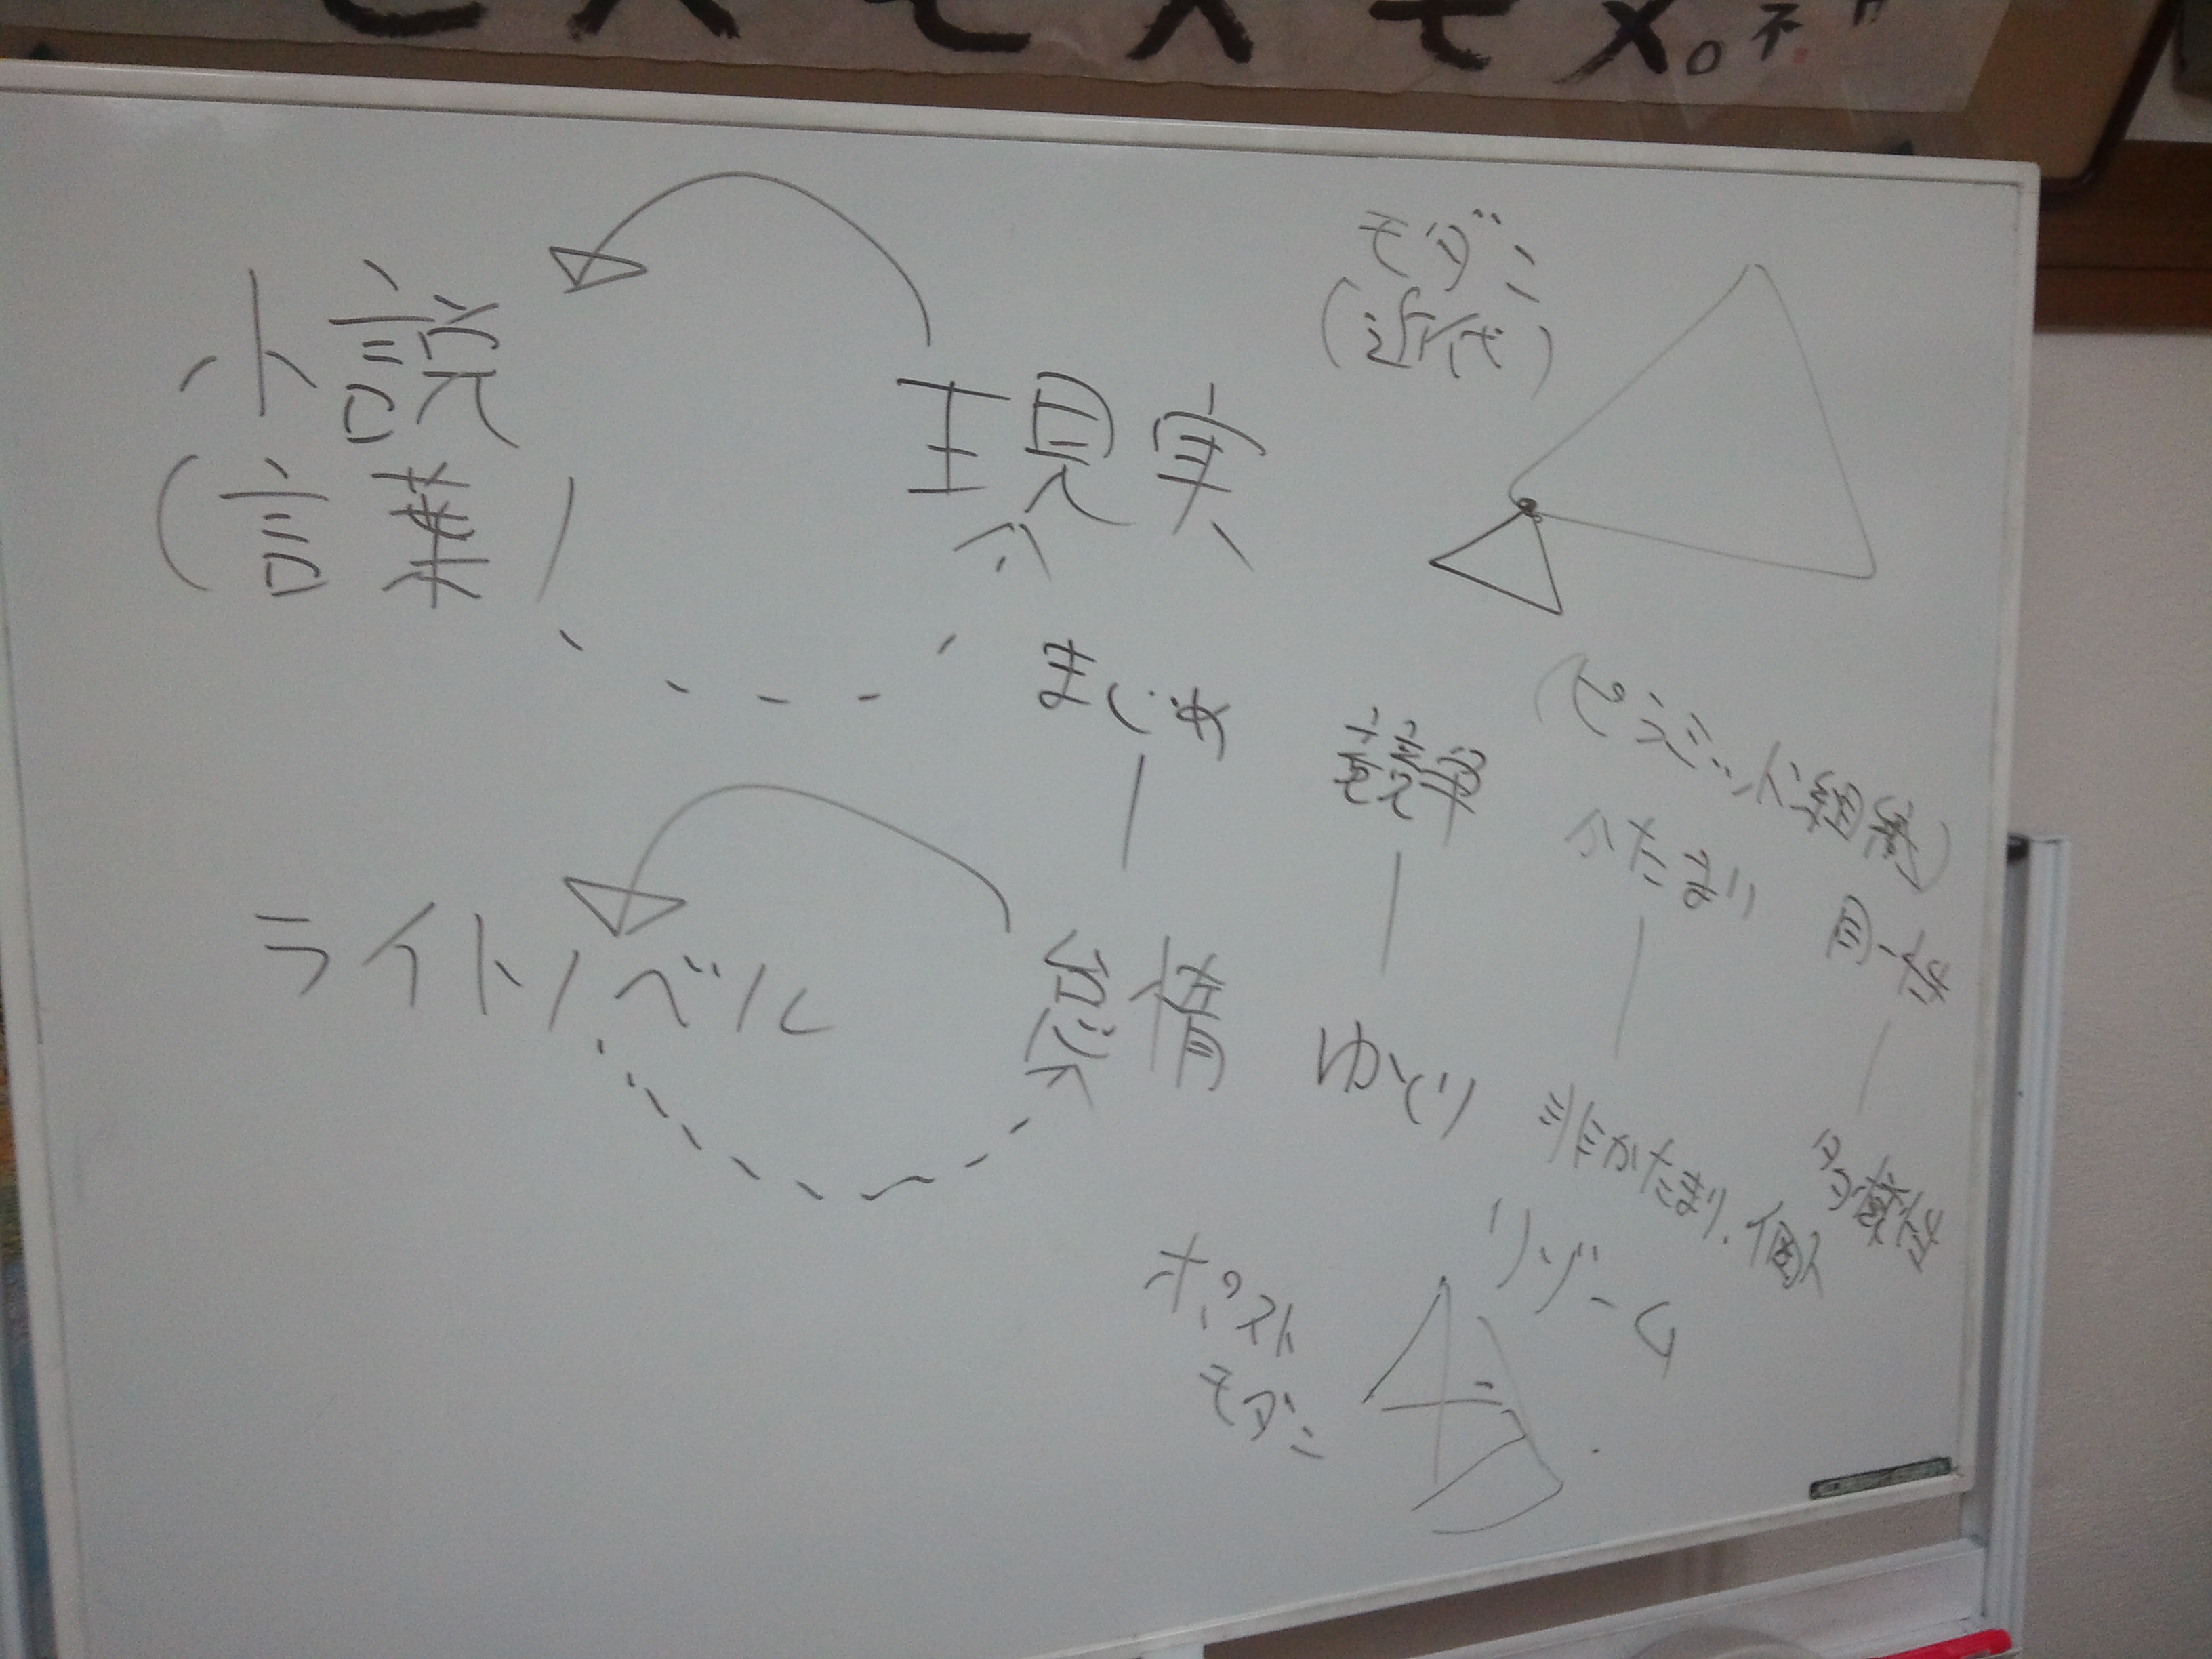 モメモメモメ。不
小説
(言葉)
現実
モダン
(近代)
まじめ
競争
(ピラミッド組織)
かたまり
同一性
ライトノベル
怠惰
ゆとり
非かたまり.個人
多様性
リゾーム
ポスト
モダン